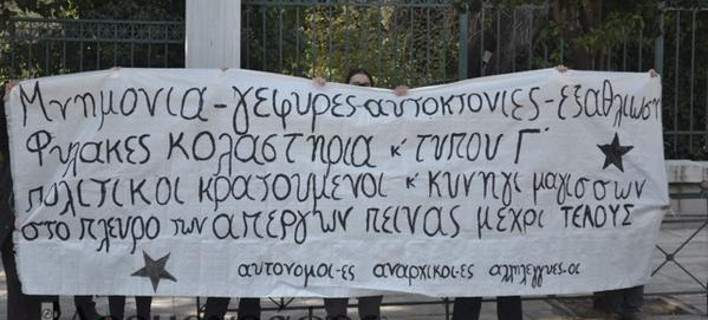 Μνημόνια - γέφυρες - αυτοκτονίες - εξαθλίωση
Φυλακές κολαστήρια κ' τύπου Γ'
πολιτικοί κρατούμενοι κ' κυνήγι μαγισσών
στο πλευρό των απεργών πείνας μέχρι ΤΕΛΟΥΣ
αυτόνομοι-ες αναρχικοί-ες αλληλέγγυες-οι